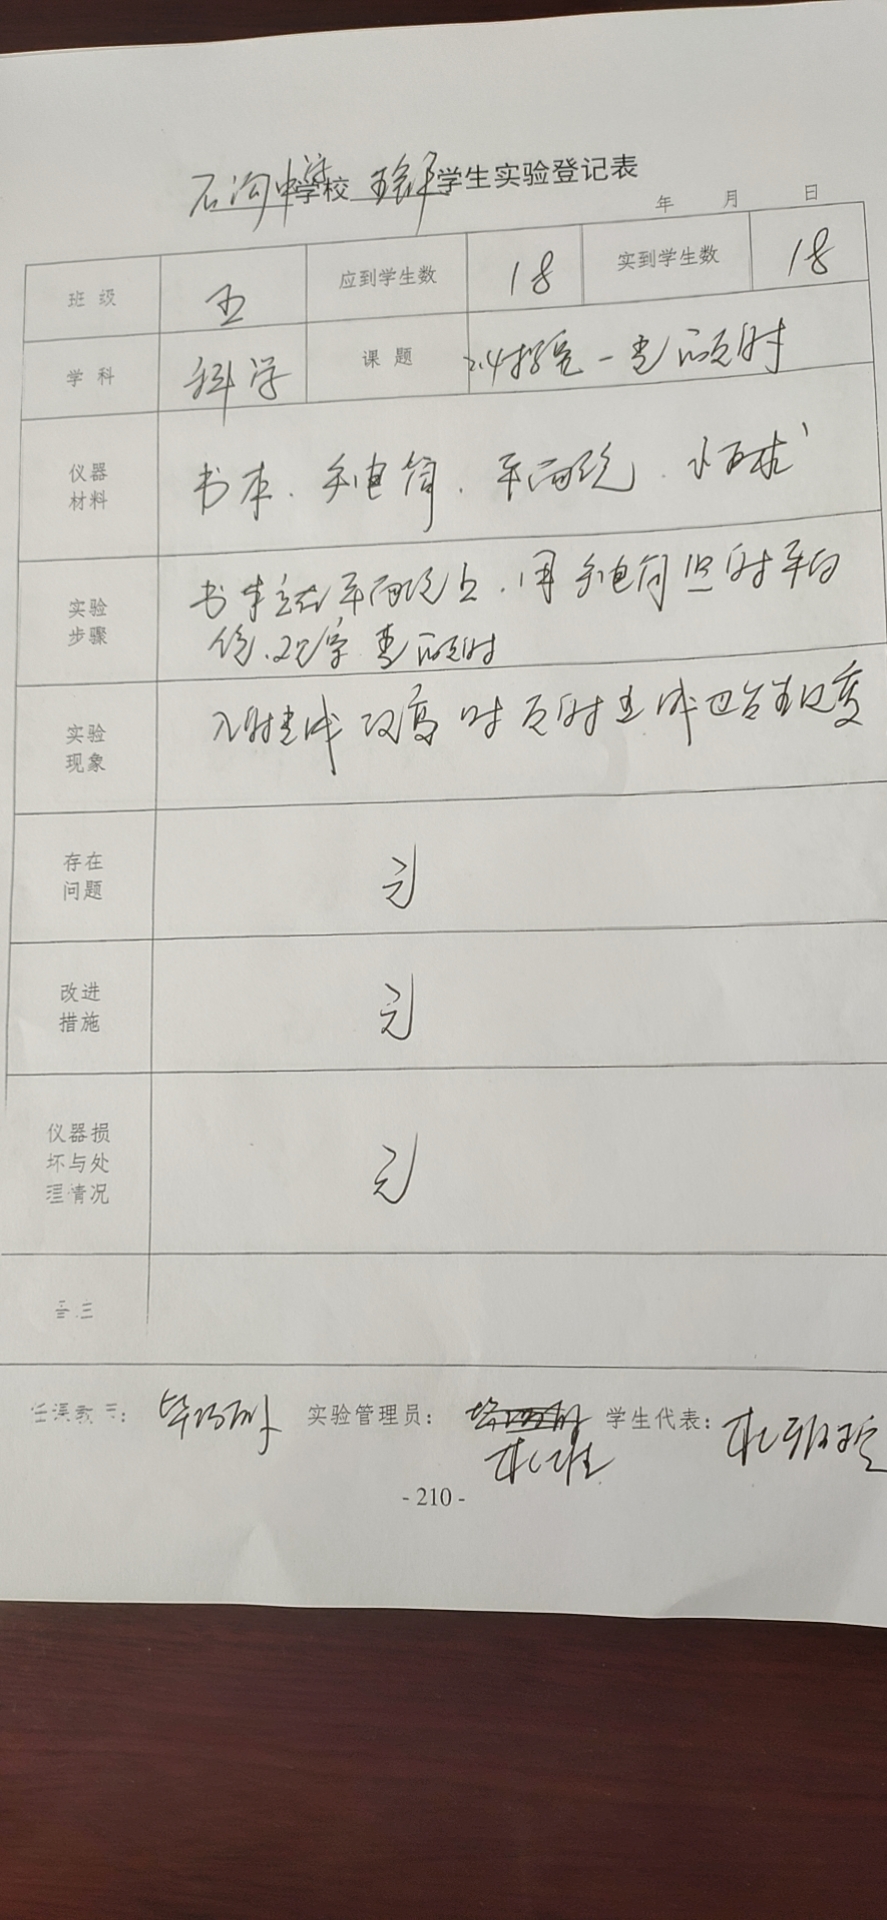 石沟中学学校 五年级学生实验登记表
年 月 日
班 级 五 应到学生数 18 实到学生数 18
学 科 科学 课 题 2.4探究一光的反射
仪器材料 书本、手电筒、平面镜、
实验步骤 书本立在平面镜上,用手电筒照射平面
镜,观察光的反射
实验现象 入射光线改变时反射光线也会
存在问题 无
改进措施 无
仪器损坏与处理情况 无
任课教师: 实验管理员: 学生代表:
- 210 -